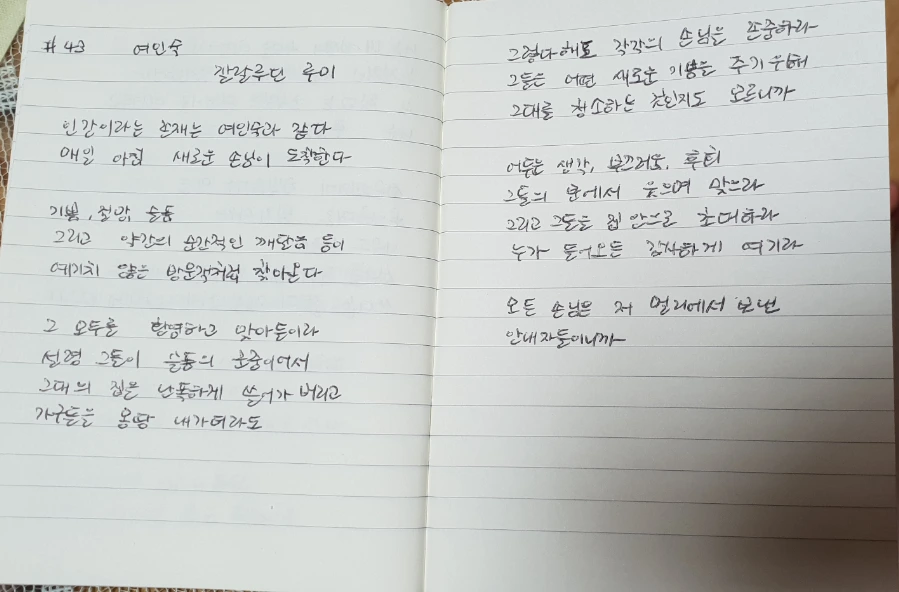 #43 여인숙
잘랄루딘 루미
인간이라는 존재는 여인숙과 같다
매일 아침 새로운 손님이 도착한다
기쁨, 절망, 슬픔
그리고 약간의 순간적인 깨달음 등이
예기치 않은 방문객처럼 찾아온다
그 모두를 환영하고 맞아들이라
설령 그들이 슬픔의 군중이어서
그대의 집을 난폭하게 쓸어가 버리고
가구들을 몽땅 내가더라도
그렇다해도 각각의 손님을 존중하라
그들은 어떤 새로운 기쁨을 주기 위해
그대를 청소하는 것인지도 모르니까
어두운 생각, 부끄러움, 후회
그들을 문에서 웃으며 맞으라
그리고 그들을 집 안으로 초대하라
누가 들어오든 감사하게 여기라
모든 손님은 저 멀리에서 보낸
안내자들이니까